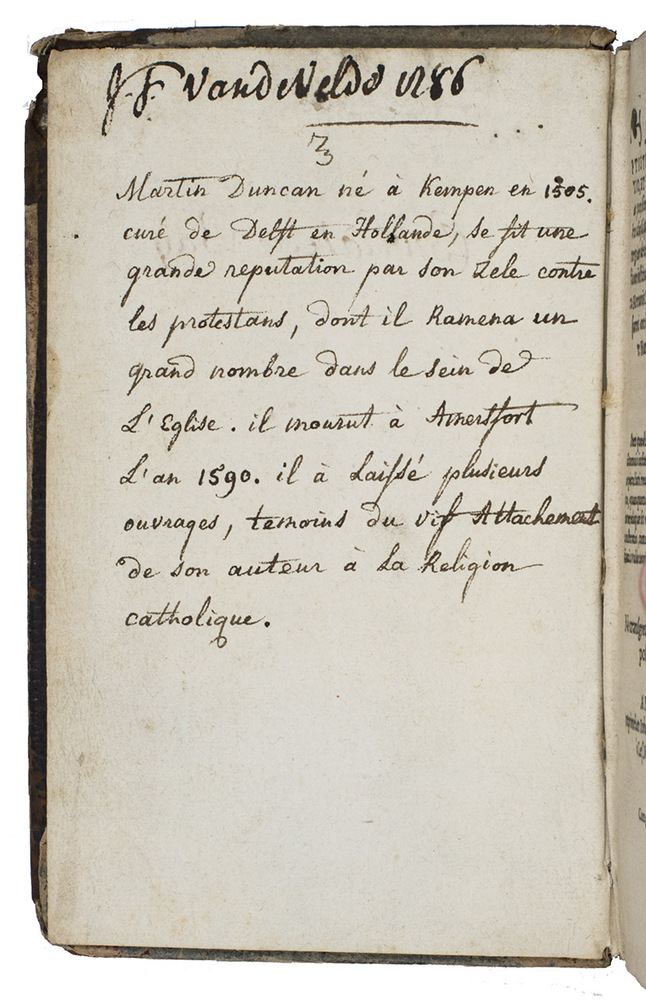 J. F. Vande Velde 1786
3
Martin Duncan né à Kempen en 1505.
curé de Delft en Hollande, se fit une
grande reputation par son Zele contre
les protestans, dont il Ramena un
grand nombre dans le sein de
L'Eglise. il mourut à Amersfort
L'an 1590. il à Laissé plusieurs
ouvrages, temoins du vif Attachement
de son auteur à La Religion
catholique.